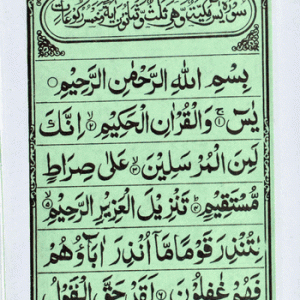 سورة يس مكية وهي ثلث وثمانون اية وخمس ركوعات
بِسْمِ اللهِ الرَّحْمٰنِ الرَّحِيْمِ
يٰسٓ ۚ ۝١ وَالْقُرْاٰنِ الْحَكِيْمِ ۝٢ اِنَّكَ
لَمِنَ الْمُرْسَلِيْنَ ۝٣ عَلٰى صِرَاطٍ
مُّسْتَقِيْمٍ ۝٤ تَنْزِيْلَ الْعَزِيْزِ الرَّحِيْمِ ۝٥
لِتُنْذِرَ قَوْمًا مَّآ اُنْذِرَ اٰبَآؤُهُمْ
فَهُمْ غٰفِلُوْنَ ۝٦ لَقَدْ حَقَّ الْقَوْلُ